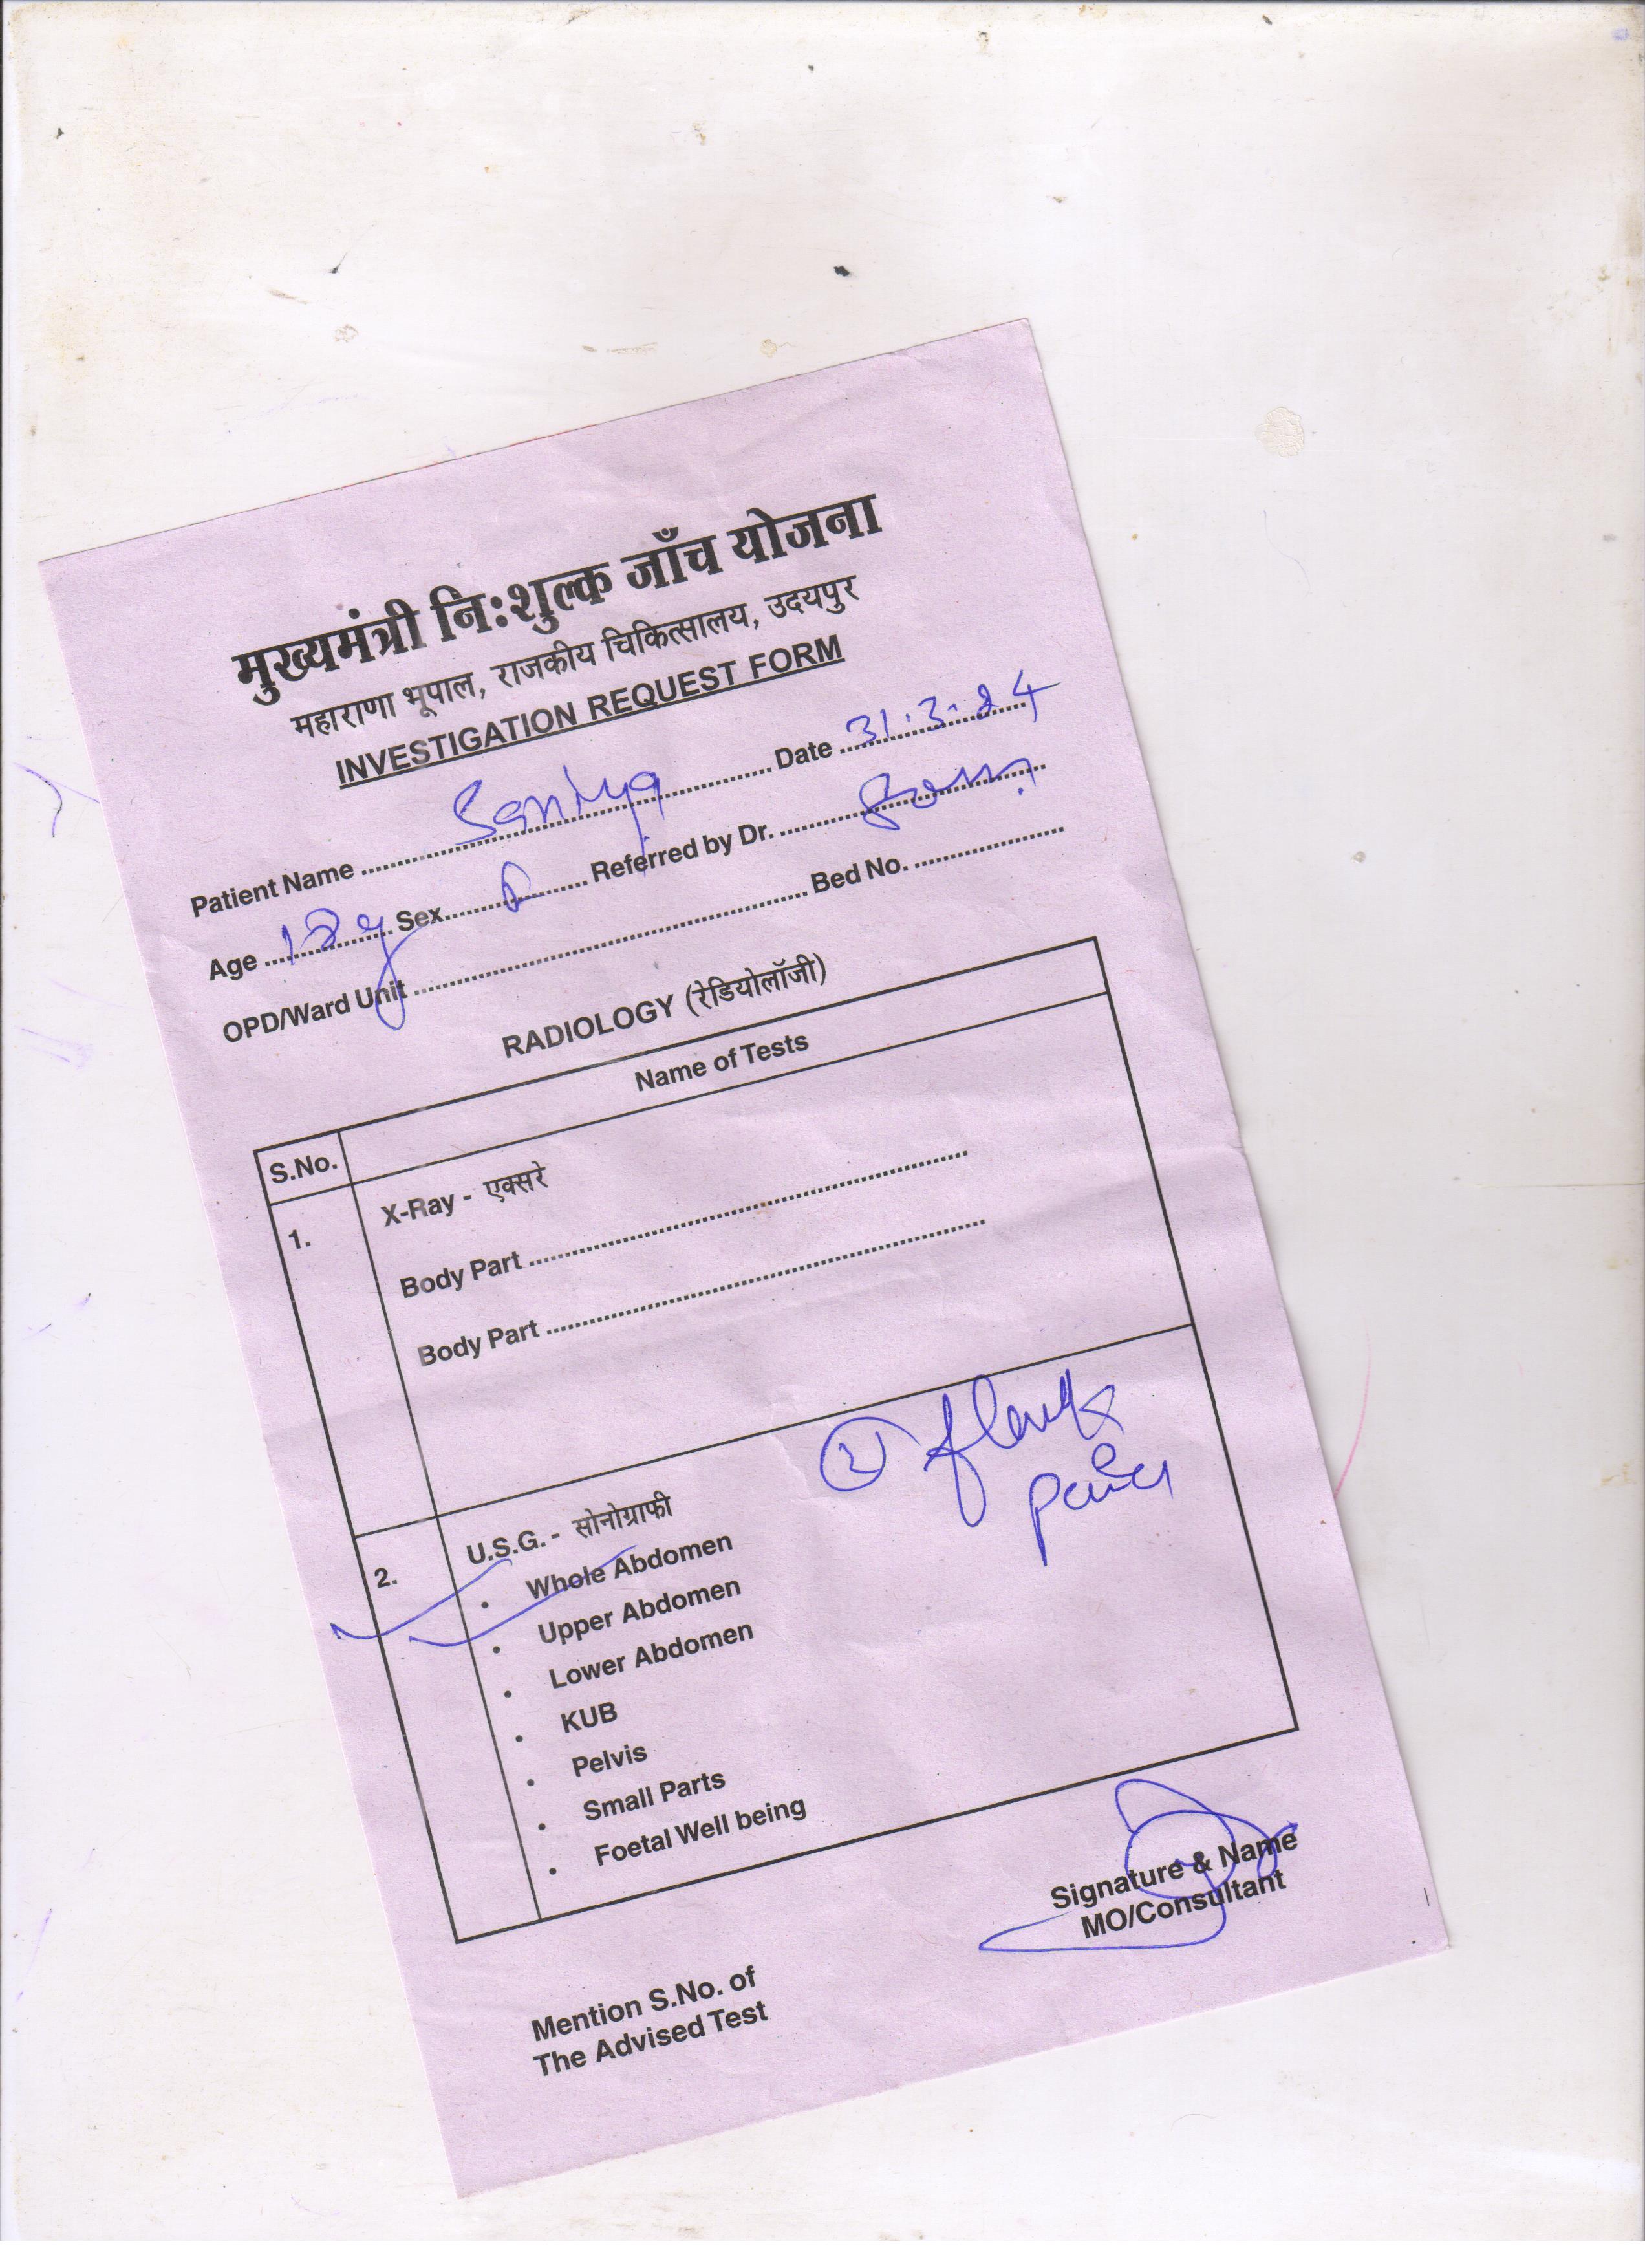 मुख्यमंत्री निःशुल्क जाँच योजना
महाराणा भूपाल, राजकीय चिकित्सालय, उदयपुर
INVESTIGATION REQUEST FORM
Patient Name Saniya Date 31.3.24
Age Sex Referred by Dr.
OPD/Ward Unit Bed No.
RADIOLOGY (रेडियोलॉजी)
S.No. Name of Tests
1. X-Ray - एक्सरे
Body Part
Body Part
2. U.S.G. - सोनोग्राफी
• Whole Abdomen
• Upper Abdomen
• Lower Abdomen
• KUB
• Pelvis
• Small Parts
• Foetal Well being
flank
pain
Signature & Name
MO/Consultant
Mention S.No. of
The Advised Test